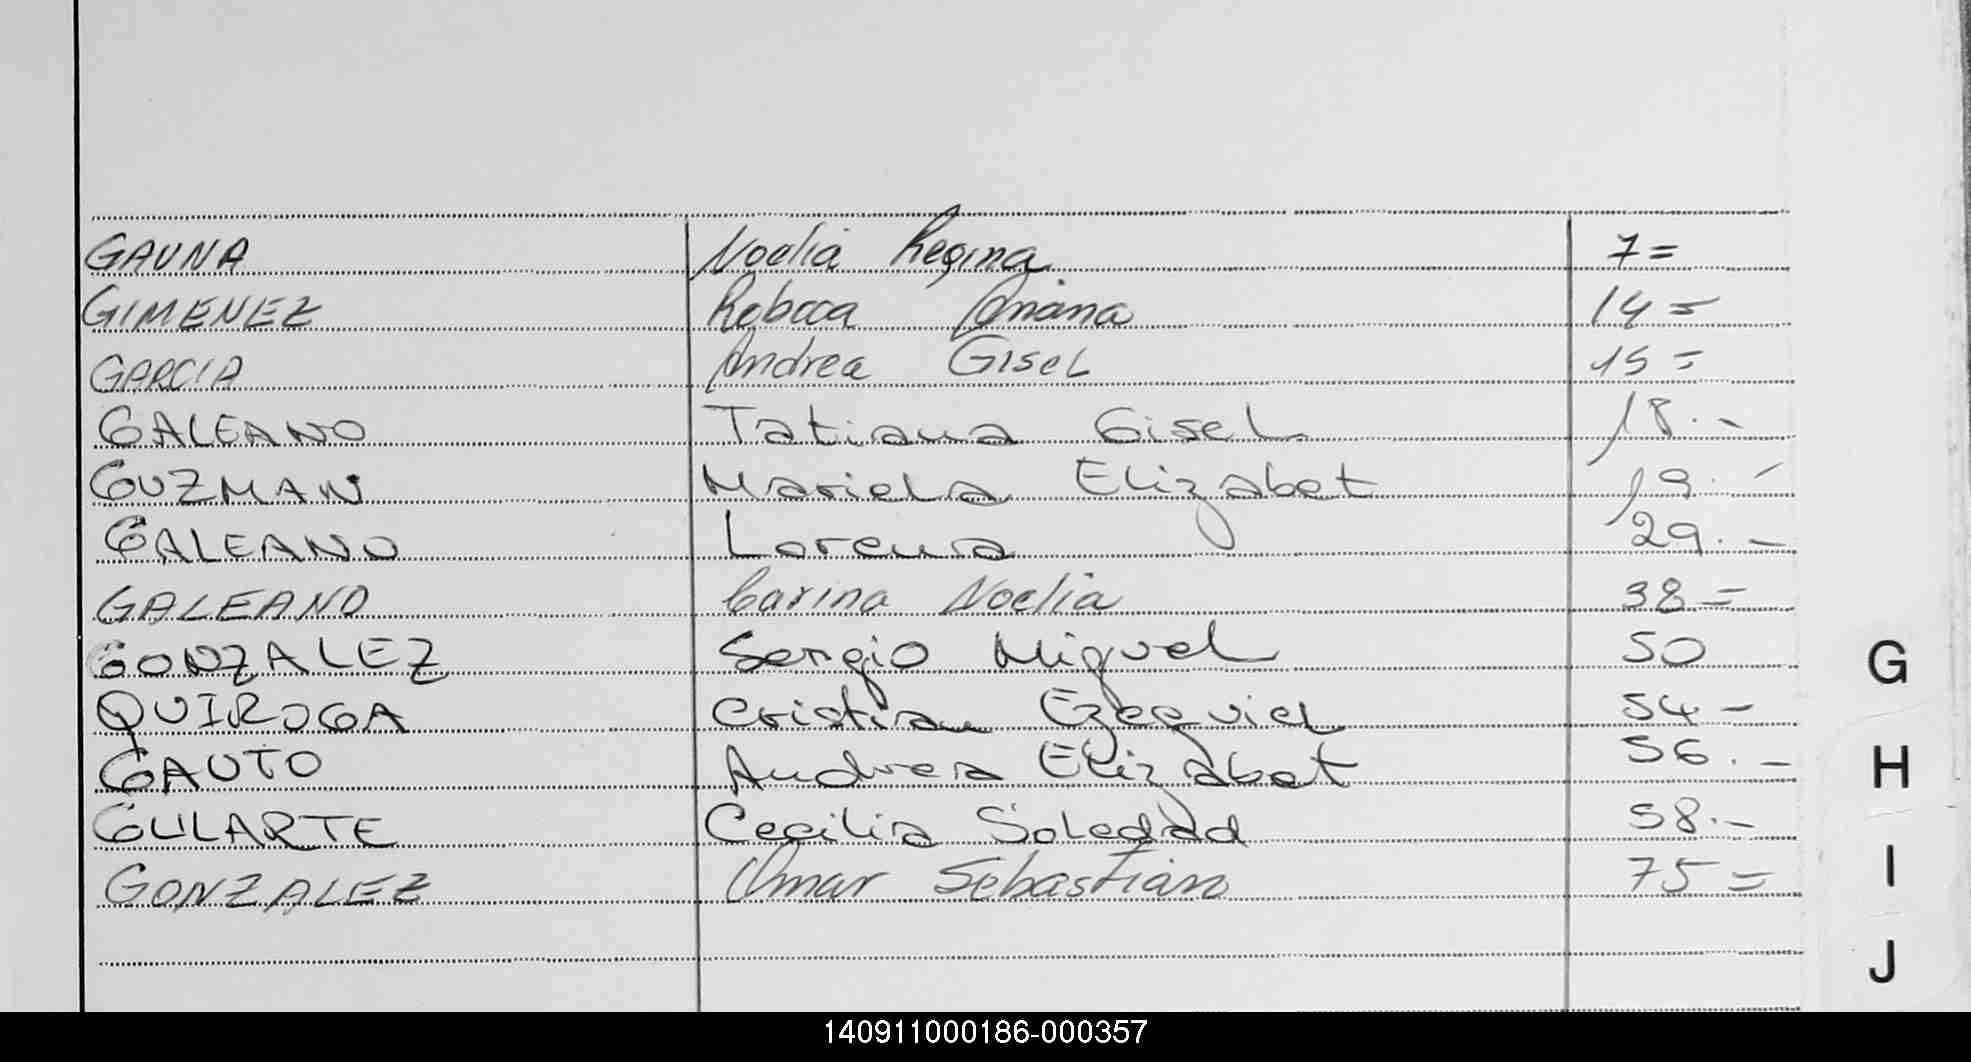 GAUNA Noelia Regina 7=
GIMENEZ Rebeca 14=
GARCIA Andrea GISEL 15=
GALEANO Tatiana GiseL 18.-
GUZMAN MarieLa ELizabet 19.-
GALEANO Lorena 29.-
GALEANO Carina Noelia 38=
GONZALEZ Sergio Miguel 50
QUIROGA Cristian Ezequiel 54-
GAUTO Andrea Elizabet 56.-
GULARTE Cecilia Soledad 58.-
GONZALEZ Omar Sebastian 75=
G
H
I
J
140911000186-000357